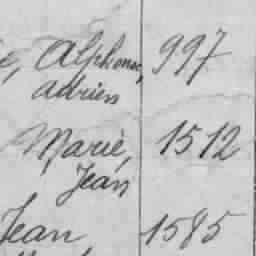 e, Alphonse, 997
Adrien
Marie, 1512
Jean
Jean 1585